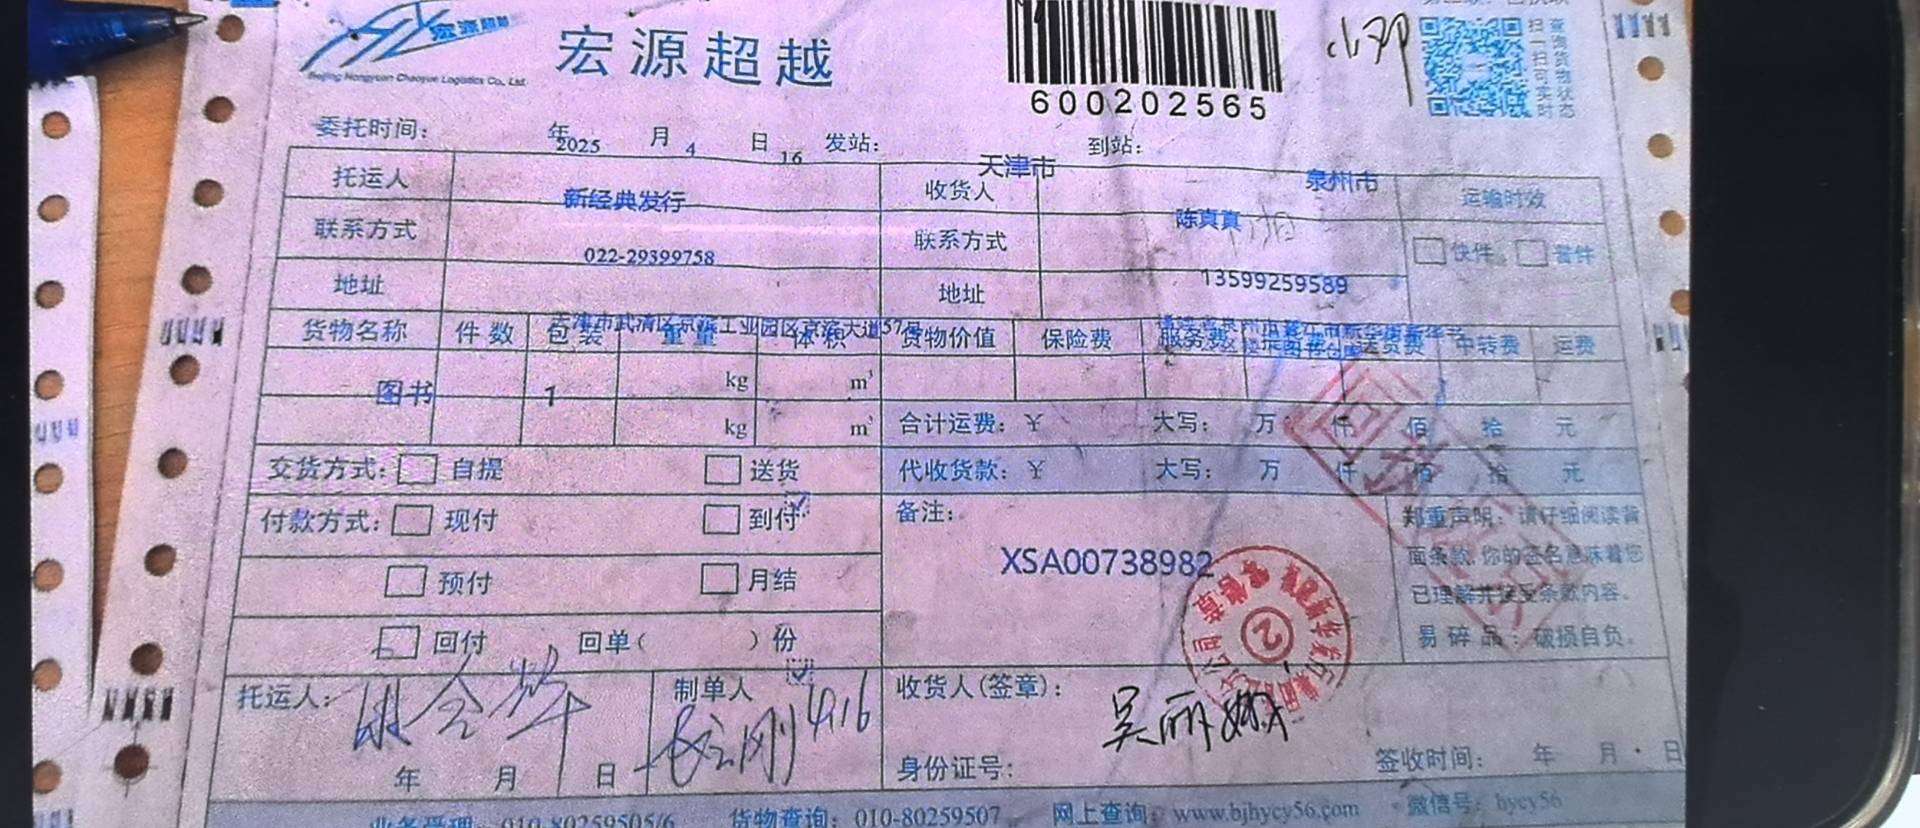 宏源超越
Beijing Hongyuan Chaoyue Logistics Co., Ltd.
宏源超越
600202565
小邓
扫一扫 查询货物
可实时状态
委托时间: 2025 年 4 月 16 日 发站: 天津市 到站: 泉州市
托运人 新经典发行 收货人 陈真真 运输时效
联系方式 022-29399758 联系方式 13599259589 快件 普件
地址 天津市武清区京滨工业园区京滨大道57号 地址
货物名称 件数 包装 重量 体积 货物价值 保险费 服务费 提货费 送货费 中转费 运费
图书 1 kg m³
kg m³ 合计运费: ¥ 大写: 万 仟 佰 拾 元
交货方式: 自提 送货 代收货款: ¥ 大写: 万 仟 佰 拾 元
付款方式: 现付 到付 备注:
XSA00738982
预付 月结
回付 回单( )份
郑重声明: 请仔细阅读背
面条款,你的签名意味着您
已理解并接受条款内容。
易碎品: 破损自负。
托运人: 制单人 4.16 收货人(签章): 吴丽娜
年 月 日 身份证号: 签收时间: 年 月 日
业务受理: 010-80259505/6 货物查询: 010-80259507 网上查询: www.bjhycy56.com 微信号: hycy56